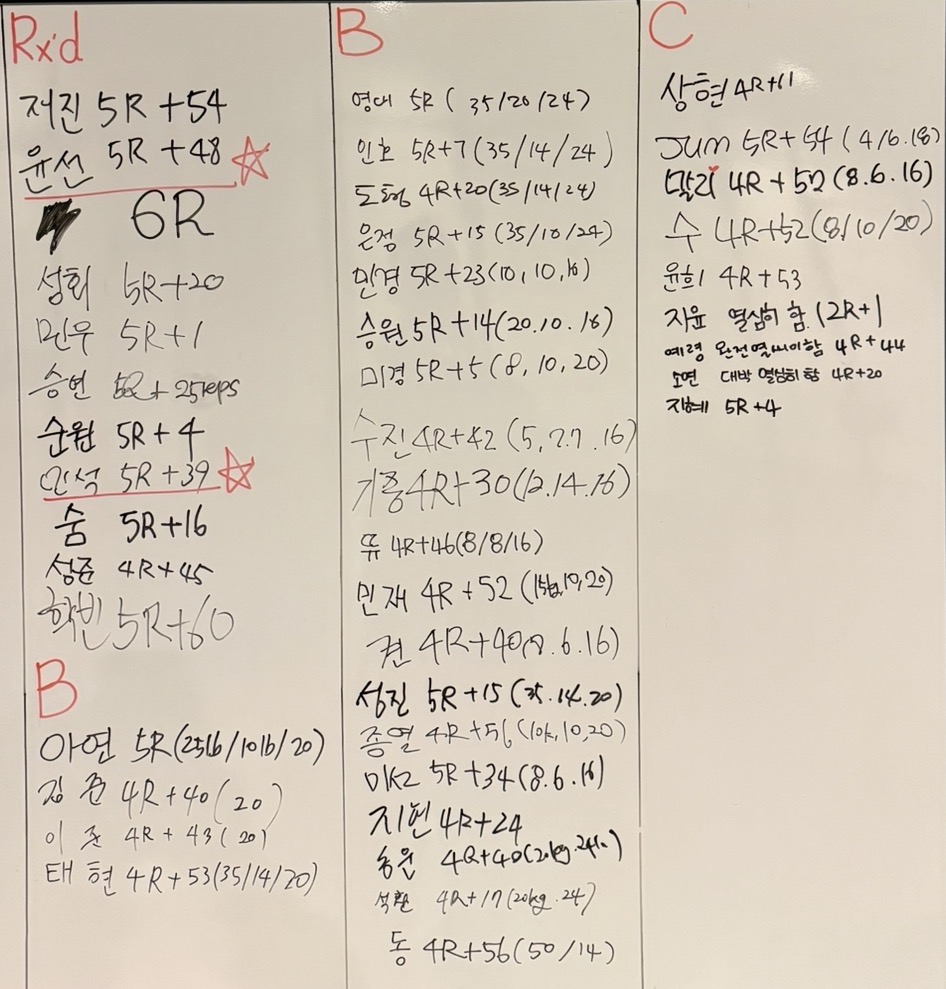 Rx'd
저진 5R +54
윤선 5R +48
6R
섬회 5R+20
민우 5R+1
승연 5R + 25reps
순원 5R+4
민석 5R +39
숨 5R+16
성준 4R+45
학빈 5R+60
B
아연 5R(25lb/10lb/20)
김준 4R+40(20)
이준 4R + 43(20)
태현 4R+53(35/14/20)
B
영대 5R (35/20/24)
인호 5R+7(35/14/24)
도형 4R+20(35/14/24)
은정 5R+15(35/10/24)
민경 5R+23(10,10,16)
승원 5R+14(20.10.16)
미경 5R+5(8,10,20)
수진 4R+42 (5,7.7.16)
기흥 4R+30(12.14.16)
뜌 4R+46(8/8/16)
민재 4R+52 (15kg,10,20)
견 4R+40(8.6.16)
성진 5R+15(35.14.20)
종열 4R+56(10k,10,20)
미K2 5R+34(8.6.16)
지현 4R+24
4R+40(20kg.24
석환 4R+17(20kg.24)
동 4R+56(50/14)
C
상현 4R+11
Jum 5R+54(4/6.18)
말리 4R+52(8.6.16)
수 4R+52(8/10/20)
윤희 4R+53
지윤 열심히 함 (2R+1
예령 완전열씨이함 4R+44
소연 대박 열심히 함 4R+20
지혜 5R+4